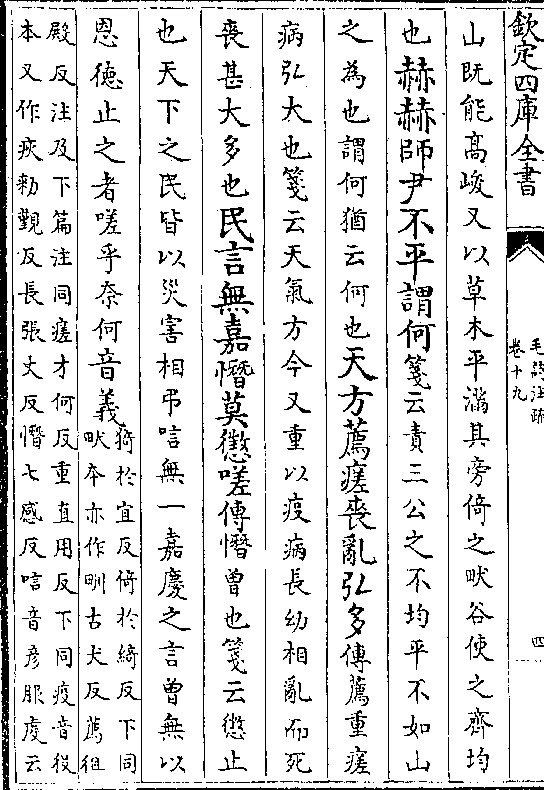 欽定四庫全書
毛詩注疏
卷十九
四
山既能高峻又以草木平滿其旁倚之畎谷使之齊均
也赫赫師尹不平謂何箋云責三公之不均平不如山
之為也謂何猶云何也天方薦瘥喪亂弘多傳薦重瘥
病弘大也箋云天氣方今又重以疫病長幼相亂而死
喪甚大多也民言無嘉憯莫懲嗟傳憯曾也箋云懲止
也天下之民皆以災害相弔唁無一嘉慶之言曾無以
恩德止之者嗟乎奈何音義
猗於宜反倚於綺反下同
畎本亦作甽古犬反薦徂
殿反注及下篇注同瘥才何反重直用反下同疫音役
本又作疢勑覲反長張丈反憯七感反唁音彦服虔云